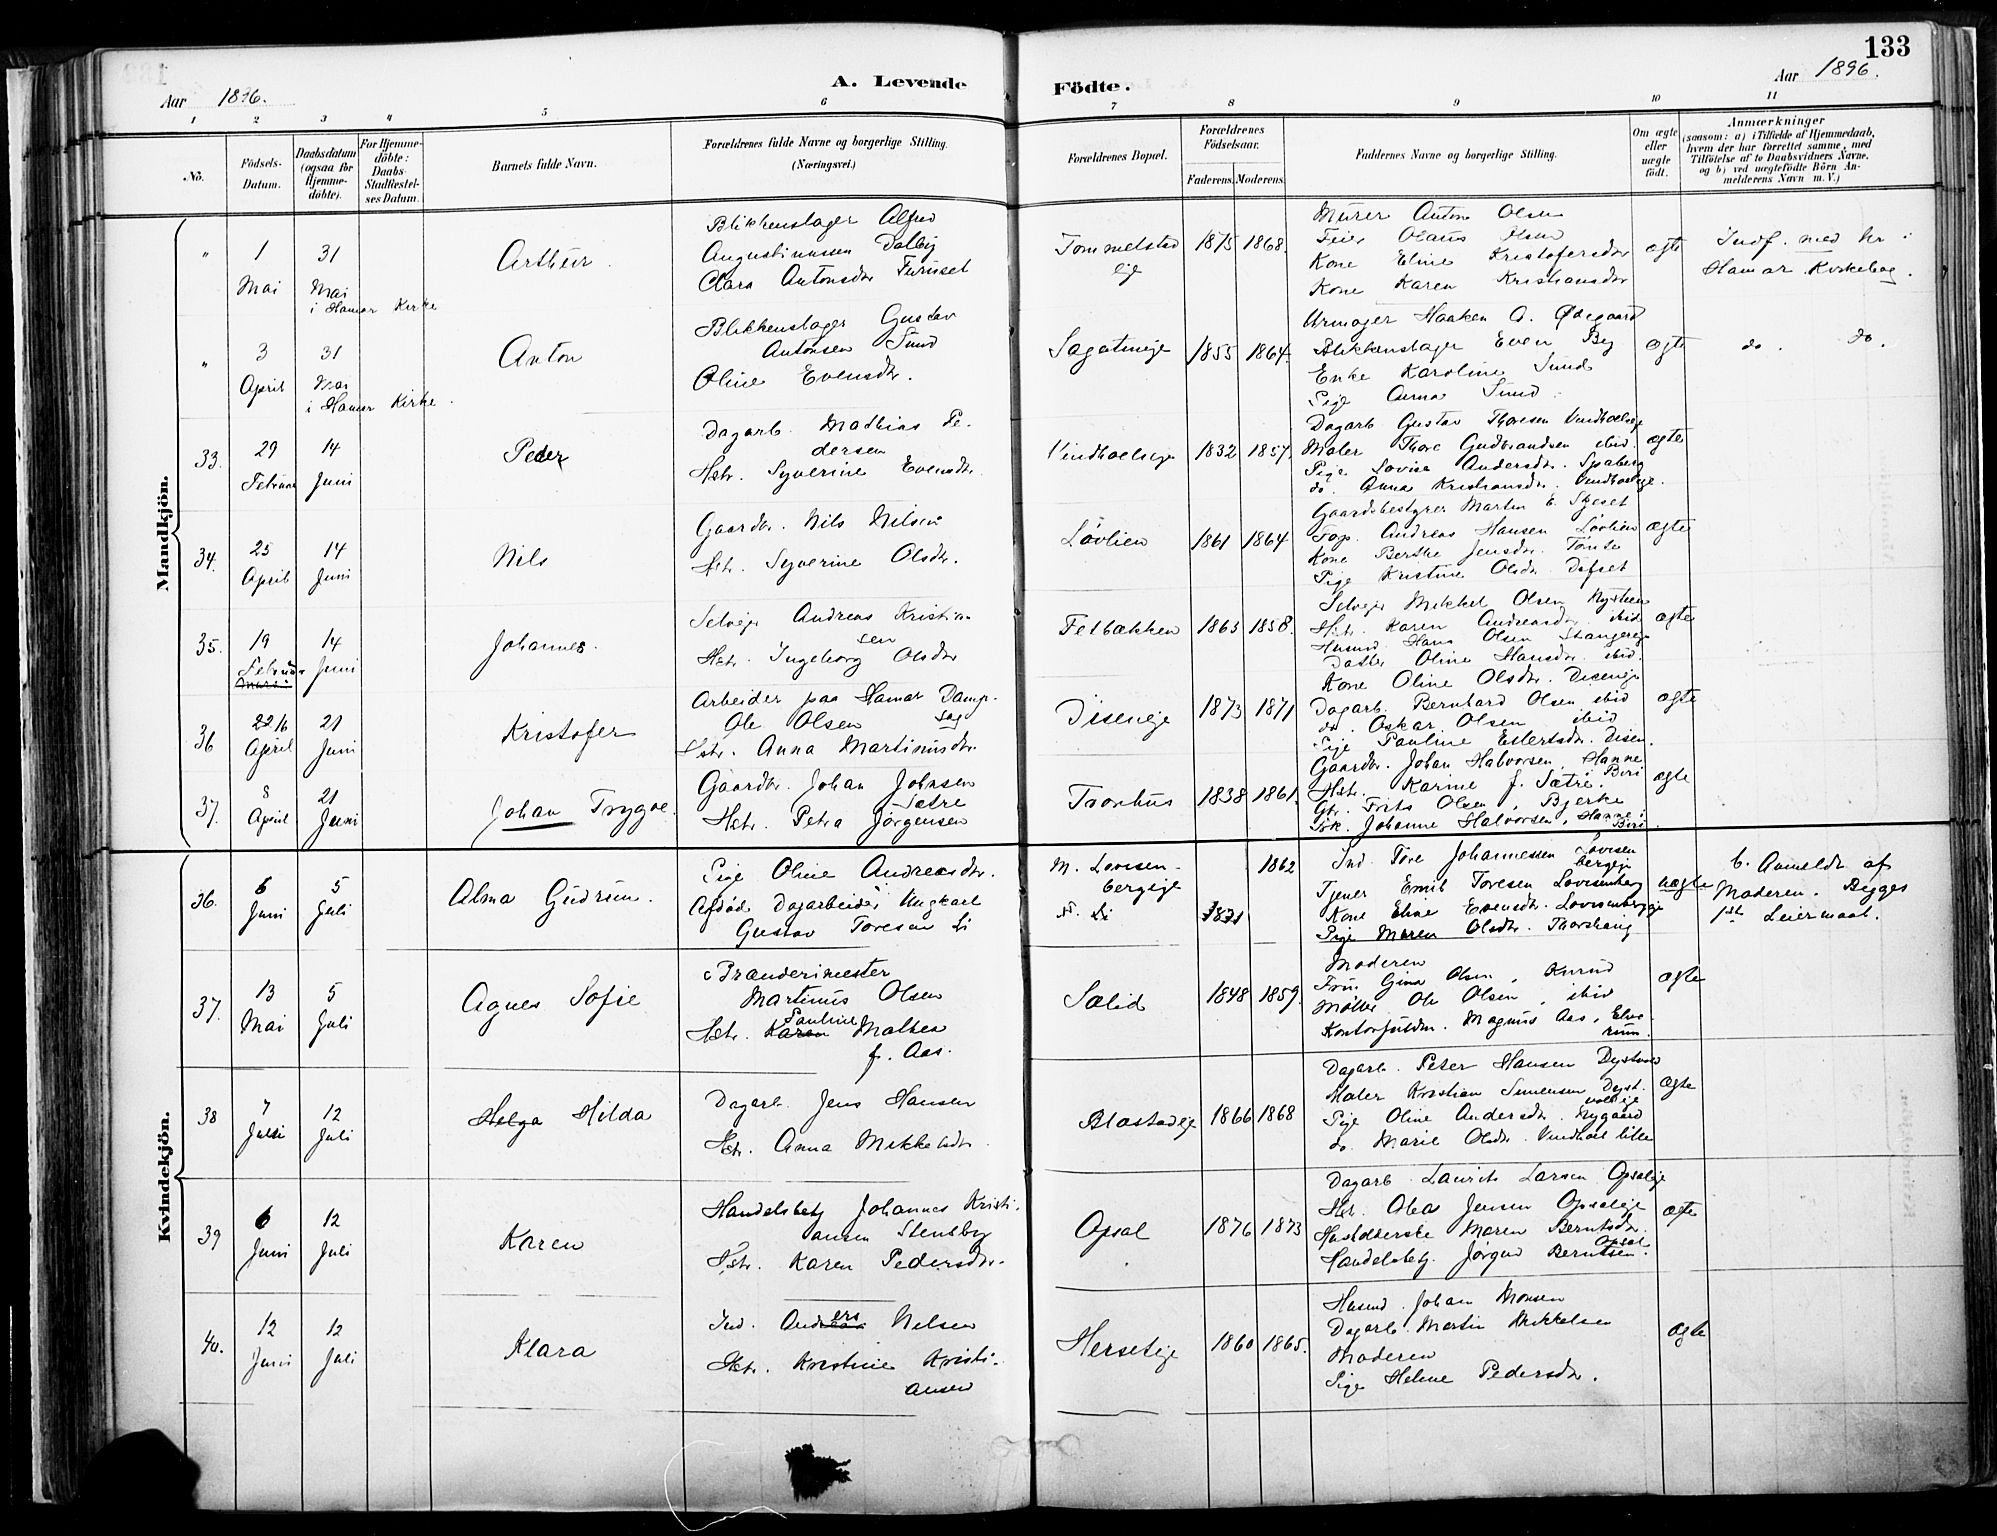 133
A. Levende Födte.
Aar 1896.
Aar 1896.
1 2 3 4 5 6 7 8 9 10 11
No.
Födsels-
Datum.
Daabsdatum
(ogsaa for
Hjemme-
döbte).
For Hjemme-
döbte:
Daabs-
Stadfestel-
ses Datum.
Barnets fulde Navn.
Forældrenes fulde Navne og borgerlige Stilling.
(Næringsvei.)
Forældrenes Bopæl.
Forældrenes
Födselsaar.
Faderens. Moderens.
Faddernes Navne og borgerlige Stilling.
Om ægte
eller
uægte
födt.
Anmærkninger
(saasom: a) i Tilfælde af Hjemmedaab,
hvem der har forrettet samme, med
Tilföielse af to Daabsvidners Navne,
og b) ved uægtefödte Börn An-
melderens Navn m. V.)
Mandkjön.
" 1 Mai
31 Mai
i Hamar Kirke
Arthur.
Blikkenslager Alfred
Augustinusen Dalby
Clara Antonsdr Furuset
Tommelstad
eje
1875 1868.
Murer Anton Olsen
Feier Olaus Olsen
Kone Eline Kristofersdr
Kone Karen Kristiansdr
ægte
Indf. med Nr i
Hamar Kirkebog.
" 3 April
31 Mai
i Hamar Kirke.
Anton
Blikkenslager Gustav
Antonsen Sund
Oline Evensdr.
Sagatuneje
1855 1864.
Urmager Haaken A. Ødegaard
Blikkenslager Even By
Enke Karoline Sund
Pige Anna Sund.
ægte
do. do.
33. 29 Februar
14 Juni
Peder
Dagarb. Mathias Pe-
dersen
Hstr. Syverine Evensdr.
Vindhoelseje
1832 1857.
Dagarb Gustav Thoresen Vindhoelseje
Maler Thore Gudbrandsen ibid.
Pige Lovise Andersdr. Spaberg
do. Anna Kristiansdr. Vindhoelseje.
ægte
34. 25 April
14 Juni
Nils
Gaardbr. Nils Nilsen
Hstr. Syverine Olsdr.
Løvlien
1861 1864
Gaardsbestyrer Martin E. Skjeset
Fop. Andreas Hansen Løvlien
Kone Berthe Jensdr. Tønse
Pige Kristine Olsdr. Dæfset
ægte
35. 19 Februar
Marts
14 Juni
Johannes.
Selvejer Andreas Kristian
sen
Hstr. Ingeborg Olsdr
Felbakken
1863 1858.
Selvejer Mikkel Olsen Nysteen
Hstr. Karen Andreasdr. ibid
Husmd Hans Olsen Stangereje
Datter Oline Hansdr. ibid.
ægte
36 22/6 April
21 Juni
Kristofer
Arbeider paa Hamar Damp-
sag
Ole Olsen
Hstr. Anna Martinusdr.
Diseneje
1873 1871
Kone Oline Olsdr. Diseneje
Dagarb. Bernhard Olsen ibid
do. Oskar Olsen ibid
Pige Pauline Eilertsdr. Disen.
ægte
37. 8 April
21 Juni
Johan Trygve.
Gaardbr. Johan Johnsen
Sætre
Hstr. Petra Jørgensen
Taarhus
1838 1861.
Gaardbr. Johan Halvorsen, Hanne
Biri
Hstr. Karine f. Sætri.
Gbr. Frits Olsen, Bjerke
Frk. Johanne Halvorsen, Hanne i
Biri.
ægte
Kvindekjön.
36. 6 Juni
5 Juli
Alma Gudrun.
Pige Oline Andreasdr.
Afdøde Dagarbeider Ungkarl
Gustav Toresen Li
M. Lovisen-
bergeje
F. Li
1862
1871
Ind. Tore Johannessen Lovisen
bergeje
Tjener Emil Toresen Lovisenberg
Kone Eline Evensdr. Lovisenbergeje
Pige Maren Olsdr. Thorshaug
uægte
b. Anmeldt af
Moderen. Begges
1ste Leiermaal.
37. 13 Mai
5 Juli
Agnes Sofie
Brænderimester
Martinus Olsen
Pauline
Hstr. Karen Mathea
f. Aas.
Sælid
1848 1859.
Moderen
Frue Gina Olsen, Kurud
Møller Ole Olsen, ibid
Kontorfuldm. Magnus Aas, Elve-
rum.
ægte
38 7 Juli
12 Juli
Helga Hilda
Dagarb. Jens Hansen
Hstr. Anna Mikkelsdr.
Blastadeje
1866 1868
Dagarb. Peter Hansen Dystvold
Maler Kristian Simensen Dyst-
voldeje
Pige Oline Andersdr. Nygaard
do Marie Olsdr. Vindhoel lille
ægte
39 6 Juni
12 Juli
Karen
Handelsbetj Johannes Kristi-
ansen Stensby
Hstr. Karen Pedersdr.
Opsal
1876 1873
Dagarb Laurits Larsen Opsaleje
Hstr. Olea Jensen Opsaleje
Husholderske Maren Berntsdr.
Opsal
Handelsbetj. Jørgen Berntsen.
ægte
40. 12 Juni
12 Juli
Klara
Ind. Anders Nilsen
Hstr. Kristine Kristi-
ansen
Herseteje
1860 1865.
Husmd. Johan Monsen
Dagarb. Martin Mikkelsen
Moderen
Pige Helene Pedersdr.
ægte